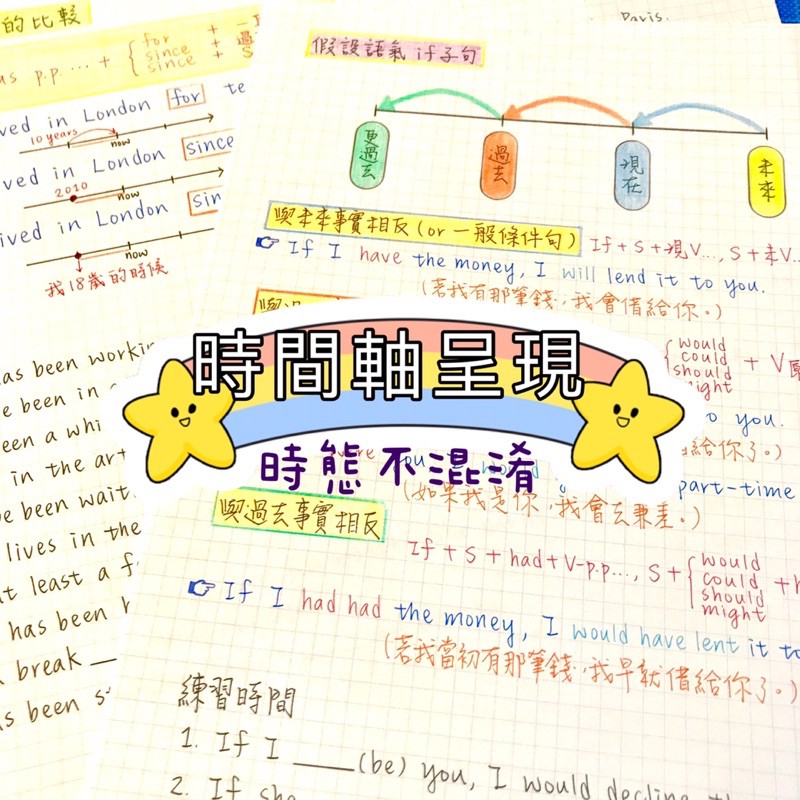 的比較
p.p. ... + { for + 一
since + 過
since + S
ved in London for te
10 years
now
ved in London since
2010
now
ived in London sin
now
我18歲的時候
as been workin
e been in
een a whi
in the art
e been wait
lives in the
t least a f
has been
break
s been s
Davis.
假設語氣 if子句
更過去
過去
現在
未來
與未來事實相反(or 一般條件句)
If + S + 現V..., S + 未V...
☞ If I have the money, I will lend it to you.
(若我有那筆錢,我會借給你。)
would
could
should
might
+ V
o you.
給你了。)
時間軸呈現
時態不混淆
part-time
(如果我是你,我會去兼差。)
與過去事實相反
If + S + had + V-p.p..., S + { would
could
should
might
+ h
☞ If I had had the money, I would have lent it to
(若我當初有那筆錢,我早就借給你了。)
練習時間
1. If I ____(be) you, I would decline
2. If she